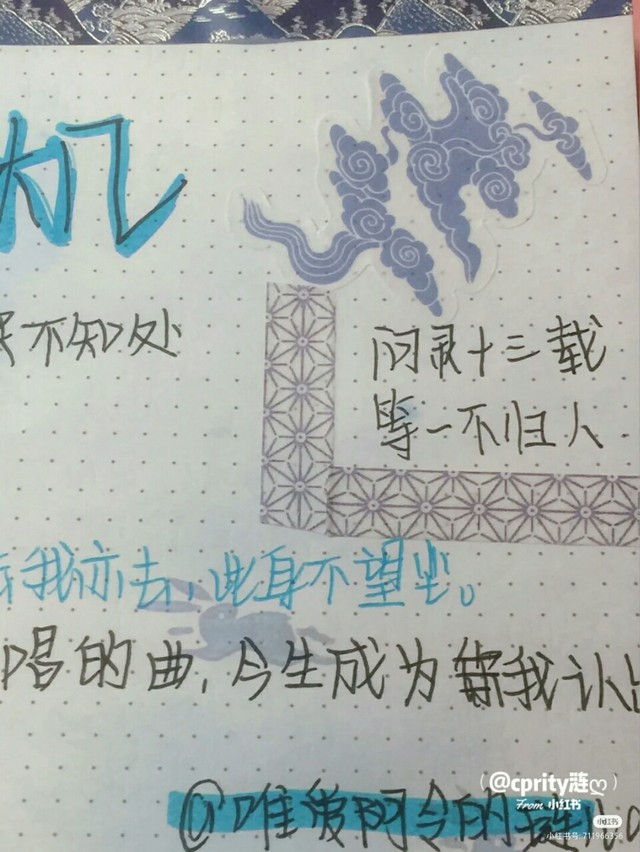 机
不知处
问灵十三载
等一不归人
我亦去,此身不望
唱的曲,今生成为 我认
@唯爱阿令的
@cprity涟
From 小红书
小红书
小红书号: 711966356